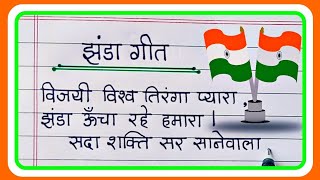 झंडा गीत
विजयी विश्व तिरंगा प्यारा,
झंडा ऊँचा रहे हमारा।
सदा शक्ति सर सानेवाला